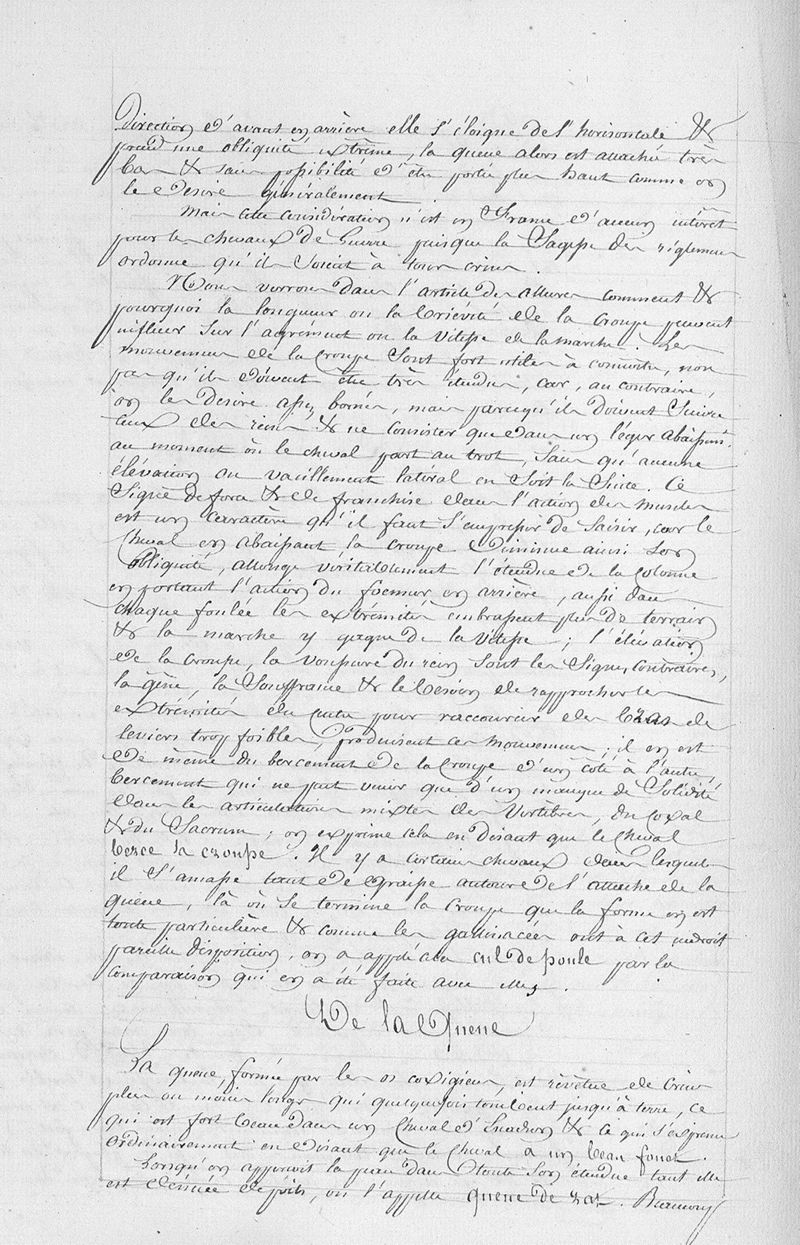 Direction d'avant en arrière elle s'éloigne de l'horisontale &
prend une obliquité extrême, la queue alors est attachée très
bas & sans possibilité d'être portée plus haut comme on
le désire généralement.
Mais cette considération n'est en France d'aucun intérêt
pour les chevaux de Guerre puisque la Sagesse des règlemens
ordonne qu'ils soient à tous crins.
Nous verrons dans l'article des allures comment &
pourquoi la longueur ou la brièvité de la Croupe peuvent
influer sur l'agrément ou la Vitesse de la marche. Les
mouvemens de la Croupe sont fort utiles à connaître, non
pas qu'ils doivent être très étendus, car, au contraire,
on les désire assez bornés, mais parcequ'ils doivent suivre
ceux des reins & ne consister que dans un léger abaissemt.
au moment où le cheval part au trot, sans qu'aucune
élévation ou vacillement latéral en soit la Suite. Ce
Signe de force & de franchise dans l'action des muscles
est un caractère qu'il faut s'empresser de saisir, car le
Cheval en abaissant la croupe diminue ainsi son
obliquité, allonge véritablement l'étendue de la colonne
en portant l'action du foemur en arrière, aussi dans
chaque foulée les extrémités embrassent plus de terrain
& la marche y gagne de la vitesse ; l'élévation
de la Croupe, la voussure du rein sont les Signes contraires,
la gêne, la Souffrance & le besoin de rapprocher les
extrémités du centre pour raccourcir des bras de
leviers trop foibles, produisent ces mouvemens ; il en est
de même du bercement de la Croupe d'un côté à l'autre,
bercement qui ne peut venir que d'un manque de Solidité
dans les articulations mixtes des Vertèbres, du Coxal
& du Sacrum ; on exprime cela en disant que le cheval
berce la croupe. Il y a certains chevaux dans lesquels
il s'amasse tant de graisse autour de l'attache de la
queue, là où se termine la Croupe que la forme en est
toute particulière & comme les gallinacées ont à cet endroit
pareille disposition, on a appelé cela cul de poule par la
comparaison qui en a été faite avec elles.
De la Queue
La queue, formée par les os coxigiens, est revêtue de Crins
plus ou moins longs qui quelquefois tombent jusqu'à terre, ce
qui est fort beau dans un Cheval d'Escadron & ce qui s'exprime
ordinairement en disant que le cheval a un beau fouet.
Lorsqu'on apperçoit la peau dans toute son étendue tant elle
est dénuée de poils, on l'appelle queue de rat.